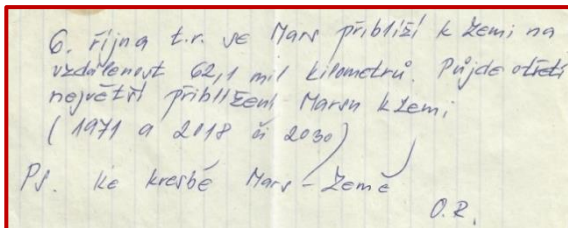 6. října t.r. se Mars přiblíží k Zemi na
vzdálenost 62,1 mil kilometrů. Půjde o třetí
největší přiblížení Marsu k Zemi
(1971 a 2018 či 2030)
PS. Ke kresbě Mars – Země
O.R.